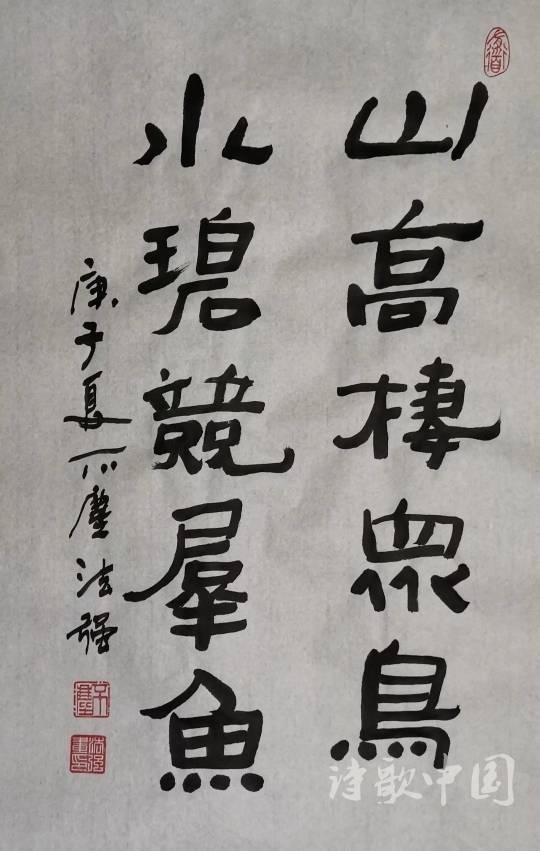 山高棲眾鳥
水碧競羣魚
庚子夏不塵法强
诗歌中国